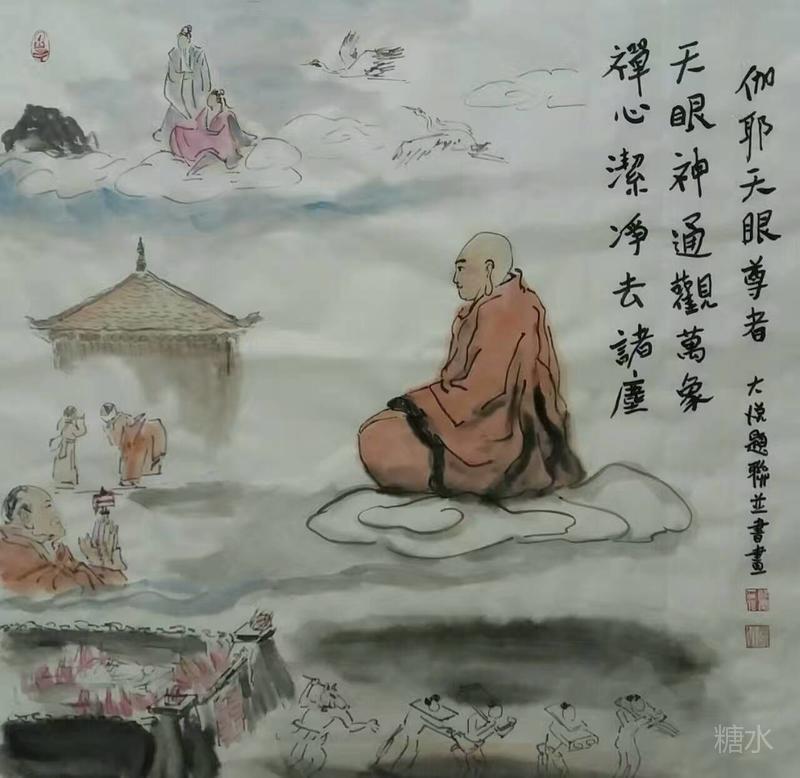 伽耶天眼尊者 大悅題聯並書畫
天眼神通觀萬象
禪心潔凈去諸塵
糖水